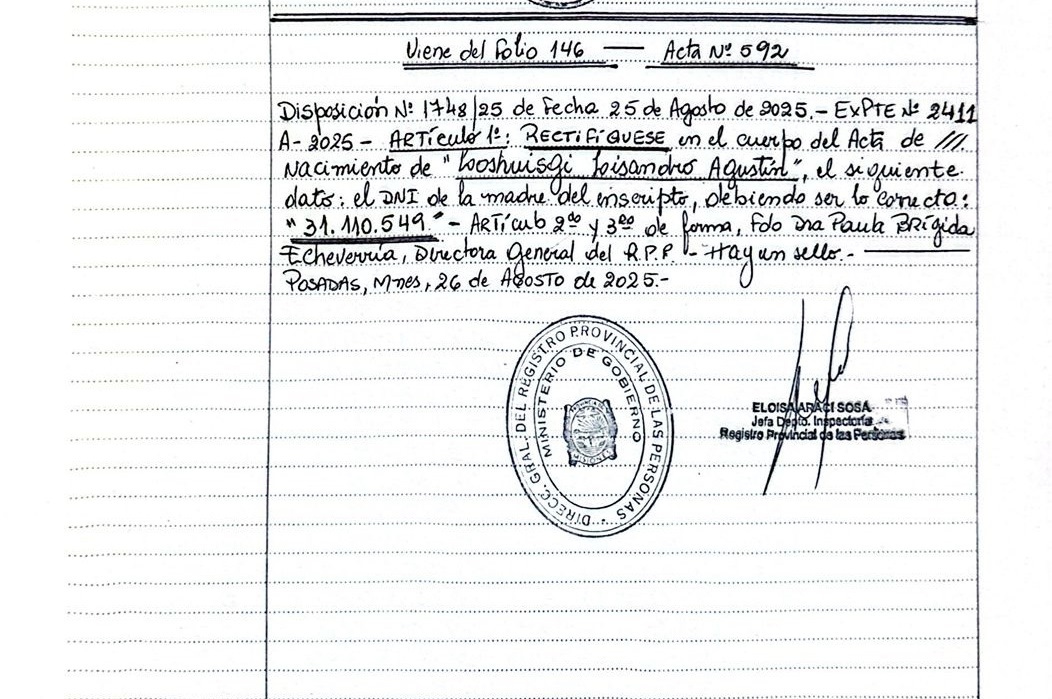 Viene del Folio 146 — Acta Nº 592
Disposición Nº 1748/25 de Fecha 25 de Agosto de 2025.- ExPTE Nº 2411
A- 2025 - ARTÍCULO 1º: RECTIFÍQUESE en el cuerpo del Acta de ///.
Nacimiento de " Lisandro Agustín", el siguiente
dato: el DNI de la madre del inscripto, debiendo ser lo correcto:
"31.110.549" - ARTÍCULO 2do y 3ro de forma, Fdo Dra Paula BRÍGIDA
Echeverría, Directora General del R.P.P. - Hay un sello.-
POSADAS, Mnes, 26 de AGOSTO de 2025.-
DIRECC. GRAL. DEL REGISTRO PROVINCIAL DE LAS PERSONAS
MINISTERIO DE GOBIERNO
MISIONES
ELOISA ARACI SOSA
Jefa Depto. Inspectoría
Registro Provincial de las Personas